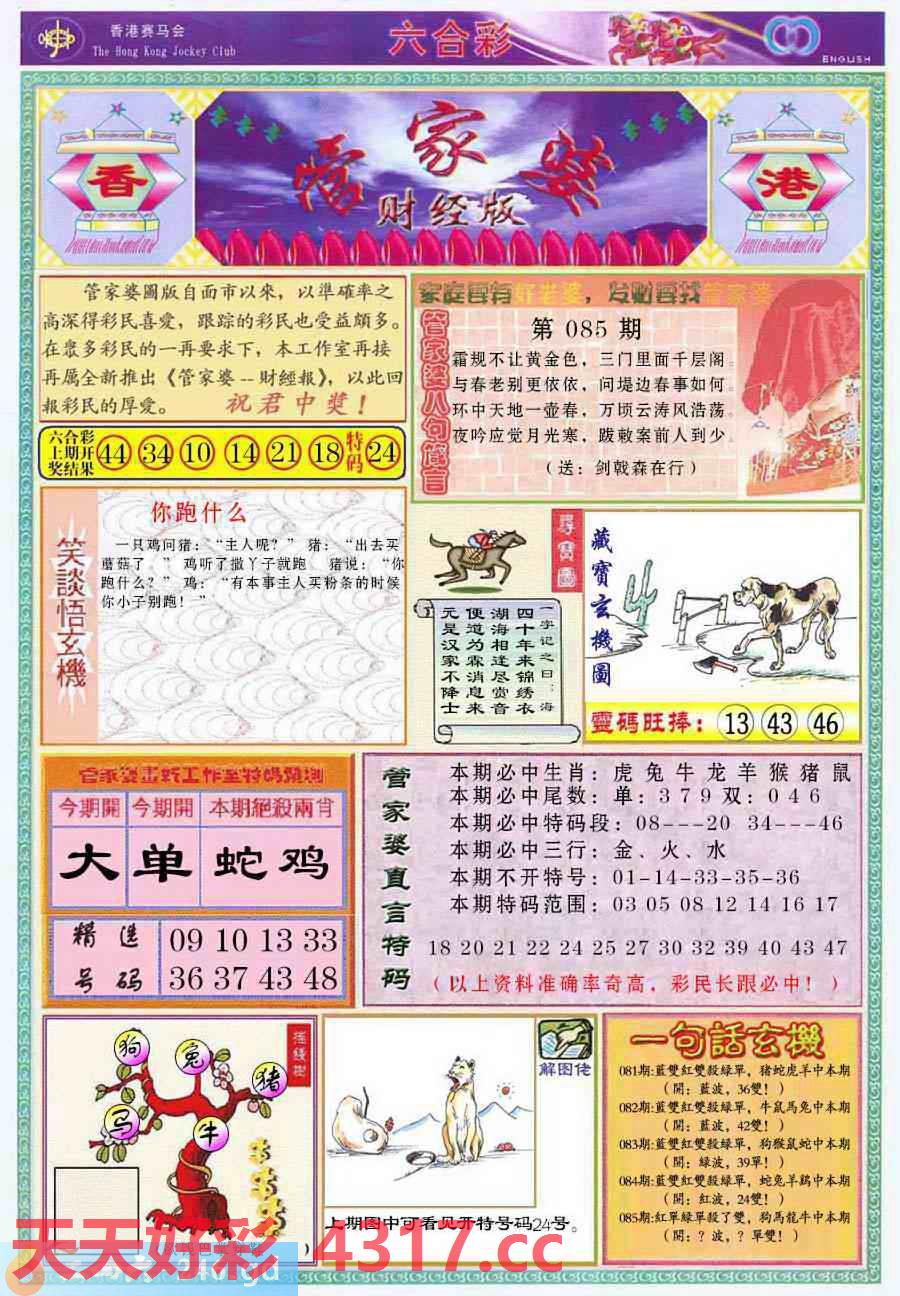 香港赛马会
The Hong Kong Jockey Club
六合彩
ENGLISH
香
管家婆
财经版
港
管家婆圖版自面市以來，以準確率之
高深得彩民喜愛，跟踪的彩民也受益頗多。
在眾多彩民的一再要求下，本工作室再接
再厲全新推出《管家婆--財經報》，以此回
報彩民的厚愛。 祝君中獎！
六合彩
上期开
奖结果
44 34 10 14 21 18 特码 24
家庭需有好老婆，发财要找管家婆
管家婆八句箴言
第 085 期
霜规不让黄金色，三门里面千层阁。
与春老别更依依，问堤边春事如何。
环中天地一壶春，万顷云涛风浩荡。
夜吟应觉月光寒，跋敕案前人到少。
（送：剑戟森在行）
笑談悟玄機
你跑什么
一只鸡问猪：“主人呢？” 猪：“出去买
蘑菇了。” 鸡听了撒丫子就跑。 猪说：“你
跑什么？” 鸡：“有本事主人买粉条的时候
你小子别跑！”
尋寶圖
一字记之曰：海
四十年来锦绣衣
湖海相逢尽赏音
便道为霖消息来
元是汉家不降士
藏寶玄機圖
靈碼旺捧： 13 43 46
管家婆畫跃工作室特碼預測
今期開 今期開 本期絕殺兩肖
大 单 蛇鸡
精选
号码
09 10 13 33
36 37 43 48
管家婆直言特码
本期必中生肖：虎 兔 牛 龙 羊 猴 猪 鼠
本期必中尾数：单：3 7 9 双：0 4 6
本期必中特码段：08---20 34---46
本期必中三行：金、火、水
本期不开特号：01-14-33-35-36
本期特码范围：03 05 08 12 14 16 17
18 20 21 22 24 25 27 30 32 39 40 43 47
（以上资料准确率奇高，彩民长跟必中！）
摇錢樹
狗
兔
猪
马
牛
解图佬
上期图中可看见开特号码24号。
一句話玄機
081期:藍雙紅雙殺綠單，猪蛇虎羊中本期
（開：藍波，36雙！）
082期:藍雙紅雙殺綠單，牛鼠馬兔中本期
（開：藍波，42雙！）
083期:藍雙紅雙殺綠單，狗猴鼠蛇中本期
（開：綠波，39單！）
084期:藍雙紅雙殺綠單，蛇兔羊鷄中本期
（開：紅波，24雙！）
085期:紅單綠單殺了雙，狗馬龍牛中本期
（開：？波，？單雙！）
天天好彩 4317.cc